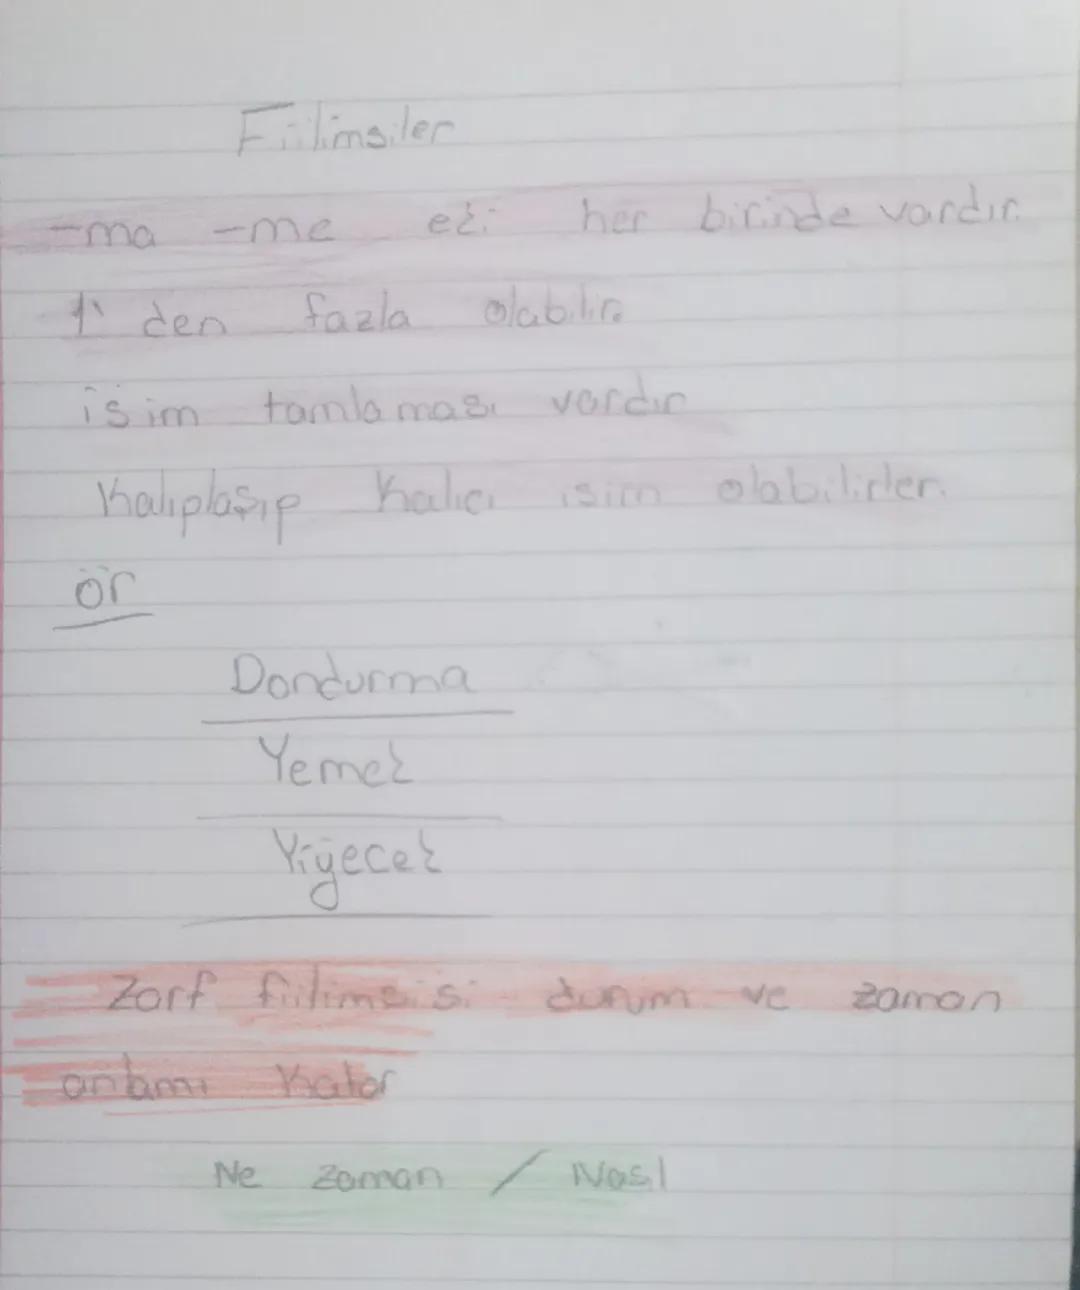 Fiilimsiler
-ma -me eki her birinde vardır.
1' den fazla olabilir.
isim tamlaması vardır
Kalıplaşıp Kalıcı isim olabilirler.
ör
Dondurma
Yemek
Yiyecek
Zarf fiilimsisi durum ve zaman
anlamı Katar
Ne zaman / Nasıl